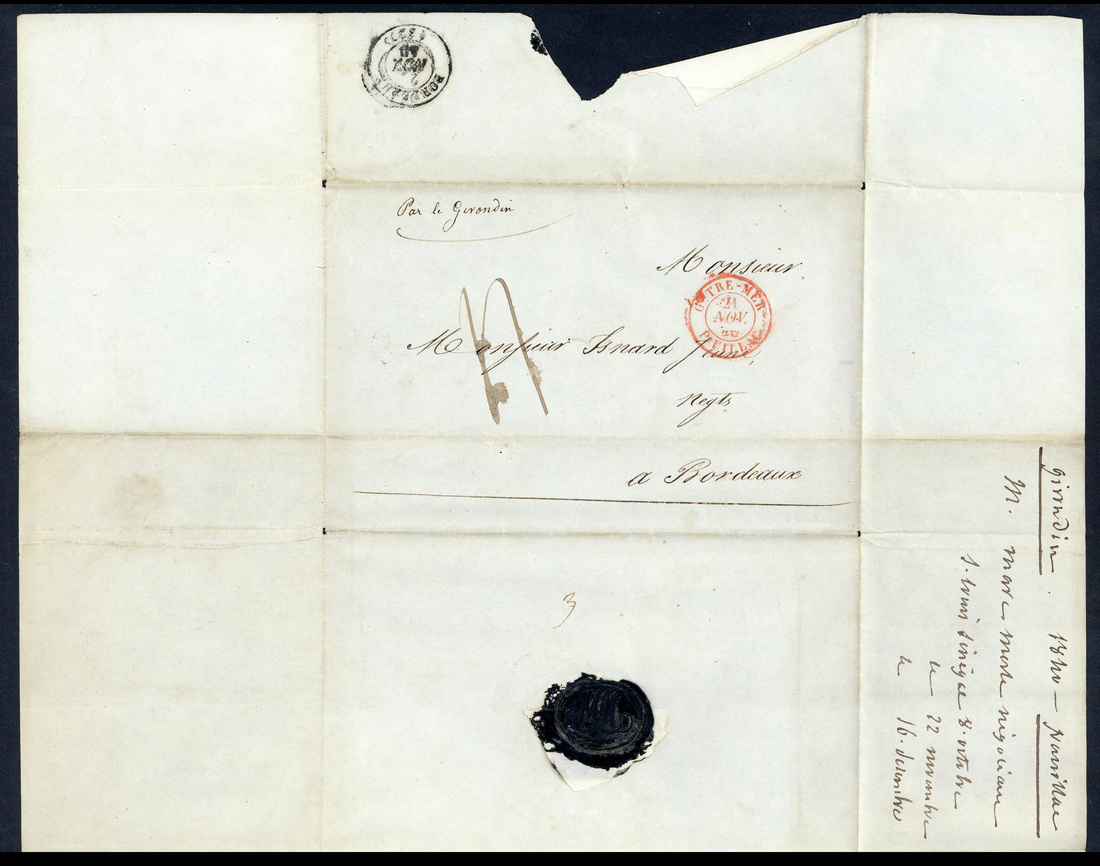 BORDEAUX
NOV.
40
(32)
Par le Girondin
Monsieur
OUTRE-MER
24
NOV.
40
PAUILLAC
Monsieur Isnard Jeune,
Negts
a Bordeaux
3
girondin. 1840 — pauillac
M. marc merle négociant
S. Louis Sénégal 8. octobre
le 22 novembre
le 16. décembre